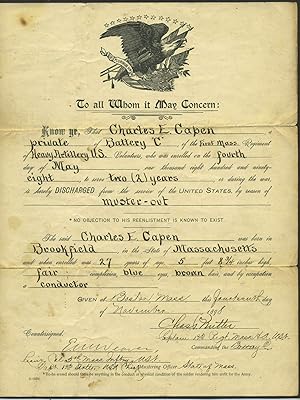 To all Whom it May Concern:
Know ye, That Charles E. Capen
a private Battery "C" of the First Mass. Regiment
of Heavy Artillery U.S. Volunteers, who was enrolled on the fourth
day of May one thousand eight hundred and ninety
eight to serve two (2) years or during the war,
is hereby DISCHARGED from the service of the UNITED STATES, by reason of
muster-out
"NO OBJECTION TO HIS REENLISTMENT IS KNOWN TO EXIST
The said Charles E. Capen was born in
Brookfield in the State of Massachusetts
and when enrolled was 27 years of age, 5 feet 8 3/4 inches high,
fair complexion, blue eyes, brown hair, and by occupation
a conductor
GIVEN at Boston Mass this fourteenth day
of November 1898
Chas. Nutter
Captain 1st Regt Mass H.A. U.S.V.
Commanding Battery C.
Countersigned.
Mustering Officer State of Mass.